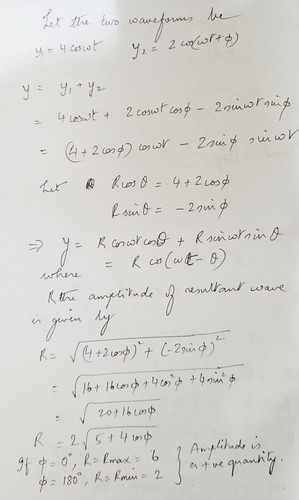 Let the two waveforms be
y₁ = 4 cosωt   y₂ = 2 cos(ωt+φ)
y = y₁ + y₂
= 4 cosωt + 2 cosωt cosφ − 2 sinωt sinφ
= (4+2cosφ) cosωt − 2 sinφ sinωt
Let R cosθ = 4+2cosφ
R sinθ = −2 sinφ
⇒ y = R cosωt cosθ + R sinωt sinθ
where = R cos(ωt − θ)
R the amplitude of resultant wave
is given by
R = √((4+2cosφ)² + (−2sinφ)²)
= √(16+16cosφ+4cos²φ+4sin²φ)
= √(20+16cosφ)
R = 2√(5+4cosφ)
If φ = 0°, R = Rmax = 6 } Amplitude is
φ = 180°, R = Rmin = 2 } a +ve quantity.